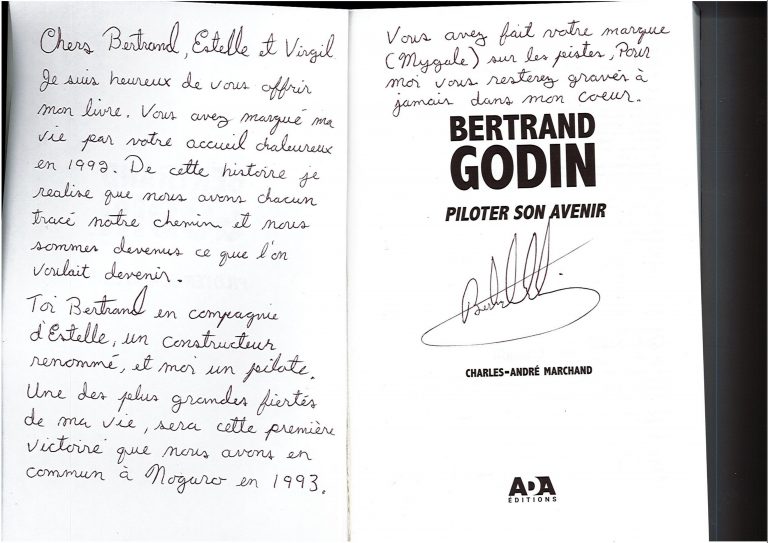 Chers Bertrand, Estelle et Virgil
Je suis heureux de vous offrir
mon livre. Vous avez marqué ma
vie par votre accueil chaleureux
en 1992. De cette histoire je
realise que nous avons chacun
tracé notre chemin et nous
sommes devenus ce que l'on
voulait devenir.
Toi Bertrand en compagnie
d'Estelle, un constructeur
renommé, et moi un pilote.
Une des plus grandes fiertés
de ma vie, sera cette première
victoire que nous avons en
commun à Nogaro en 1993.
Vous avez fait votre marque
(Mygale) sur les pistes, Pour
moi vous resterez gravés à
jamais dans mon coeur.
BERTRAND
GODIN
PILOTER SON AVENIR
CHARLES-ANDRÉ MARCHAND
ADA
ÉDITIONS